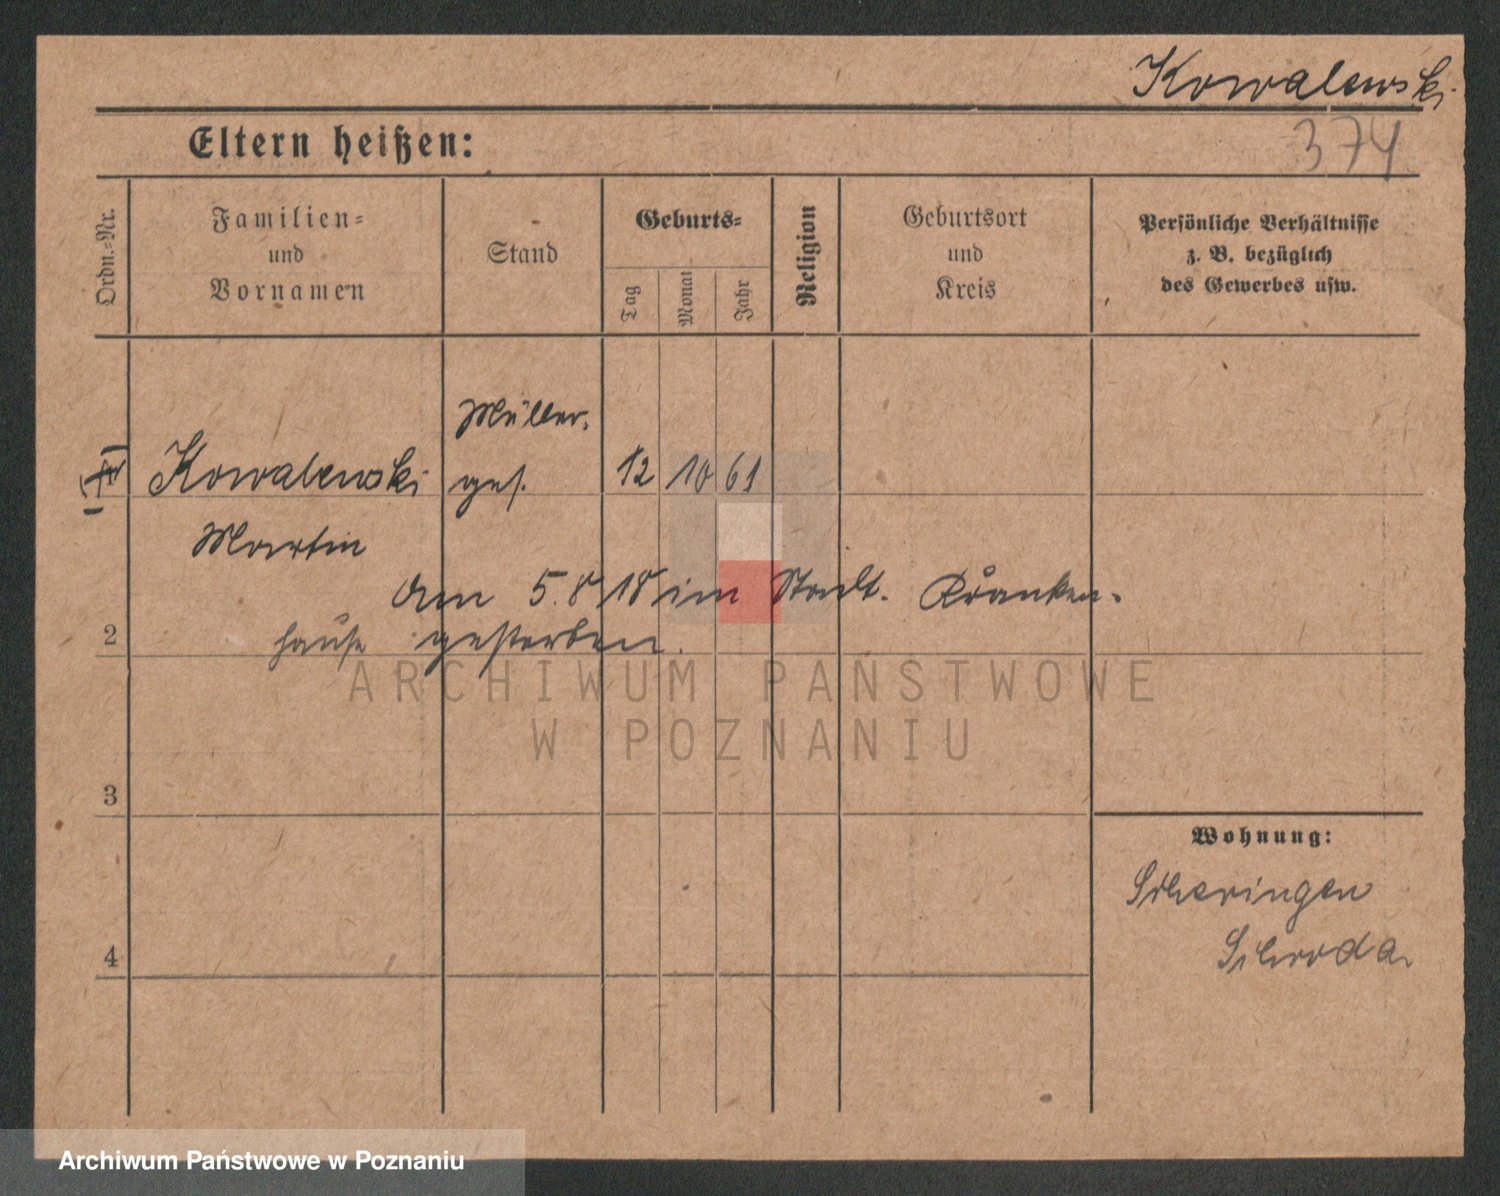 Kowalewski
Eltern heißen:
374
Ordn.-Nr.
Familien-
und
Vornamen
Stand
Geburts-
Tag
Monat
Jahr
Religion
Geburtsort
und
Kreis
Persönliche Verhältnisse
z. B. bezüglich
des Gewerbes usw.
Müller.
Kowalewski ges. 12 10 61
Martin
Am 5.8 18 im Stadt. Kranken-
hause gestorben.
2
ARCHIWUM PAŃSTWOWE
W POZNANIU
3
Wohnung:
4
Schroda
Archiwum Państwowe w Poznaniu